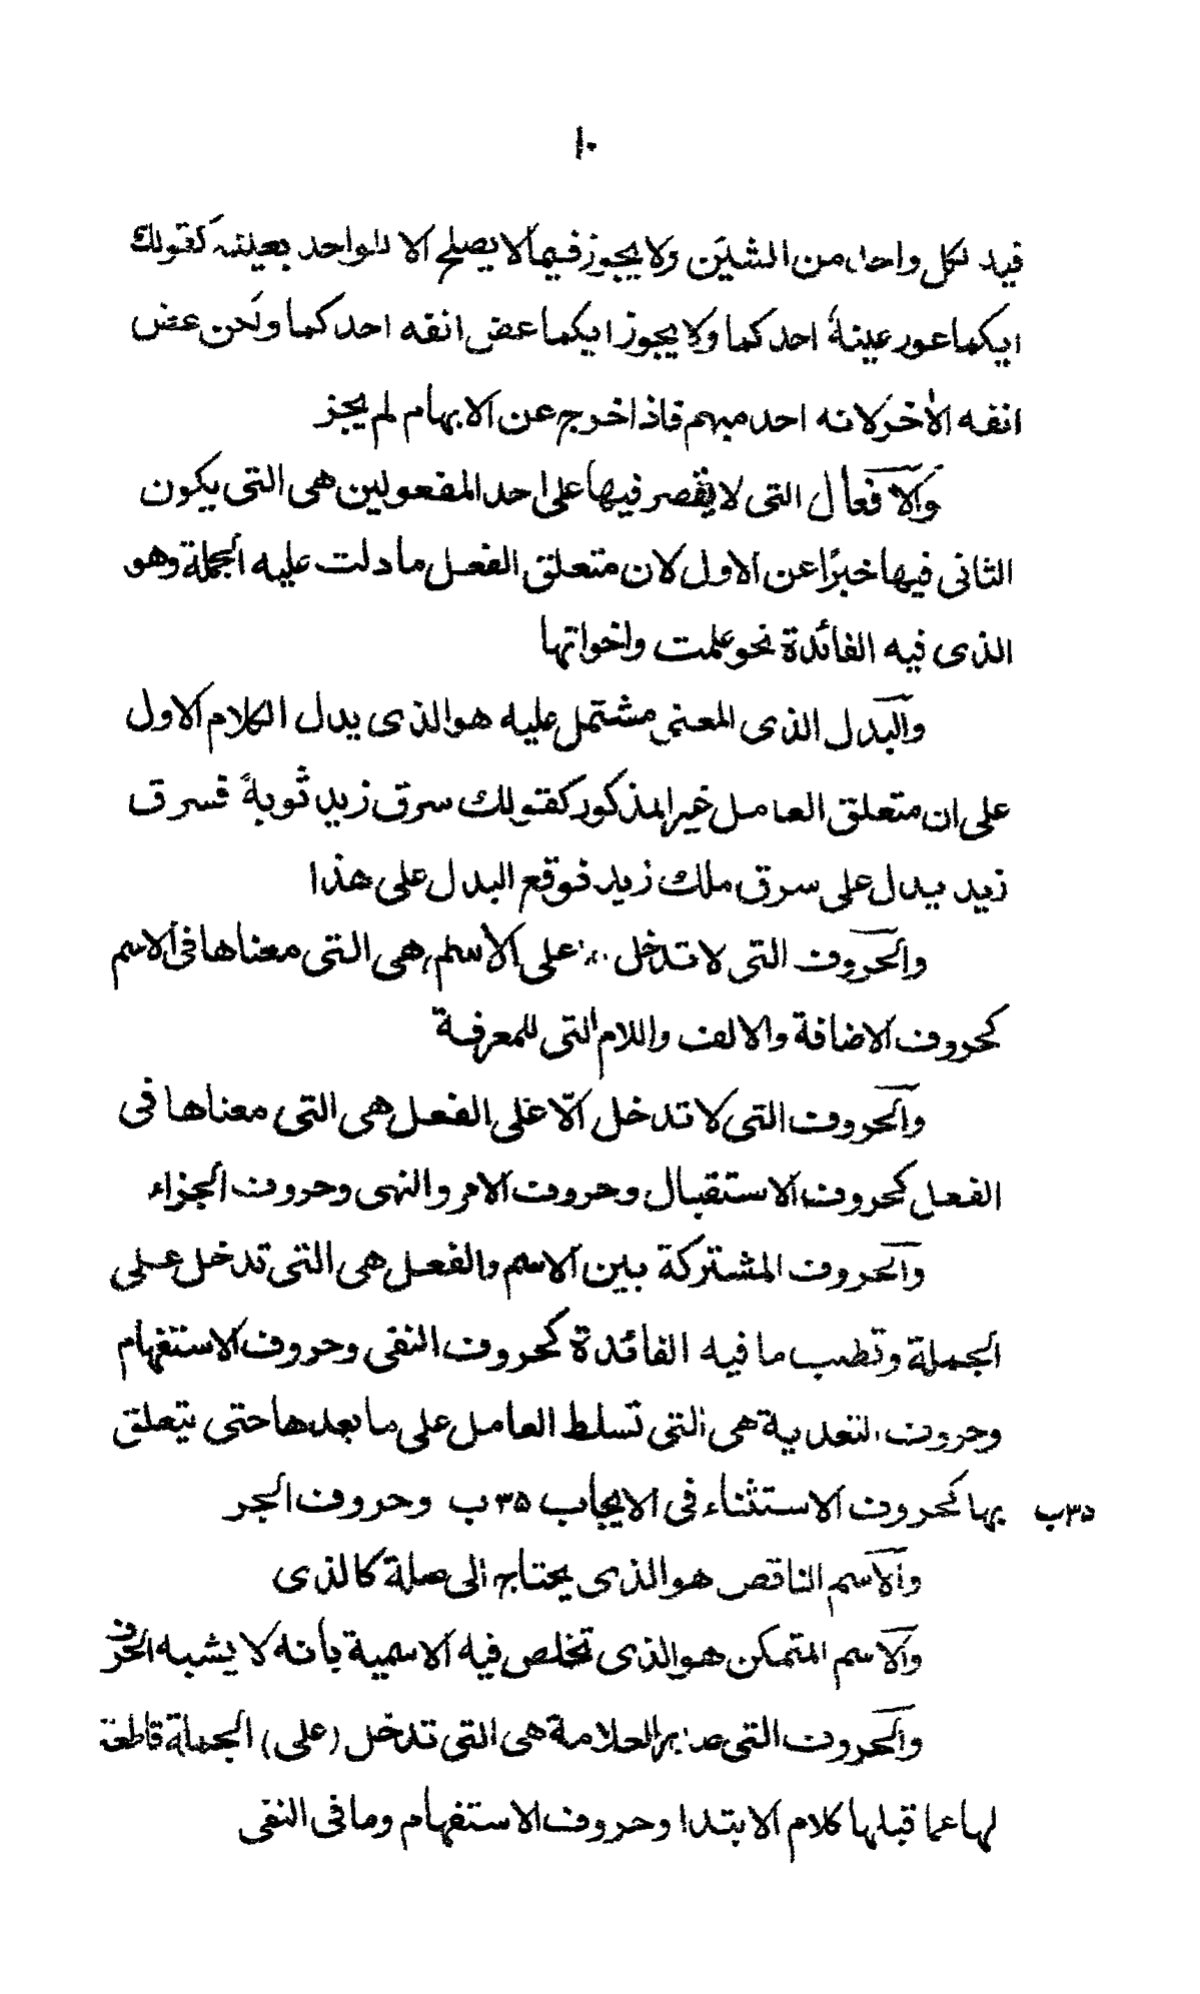 ١٠
فيه لكل واحد من الشيئين ولا يجوز فيما لا يصلح الا للواحد بعينه كقولك
ايكما عور عينهُ احدكما ولا يجوز ايكما عض انفه احدكما ولكن عض
انفه الأخر لانه احد مبهم فاذا خرج عن الابهام لم يجز
والافعال التى لا يقصر فيها على احد المفعولين هى التى يكون
الثانى فيها خبرًا عن الاول لان متعلق الفعل ما دلت عليه الجملة وهو
الذى فيه الفائدة نحو علمت واخواتها
والبدل الذى المعنى مشتمل عليه هو الذى يدل الكلام الاول
على ان متعلق العامل غير المذكور كقولك سرق زيد ثوبهُ فسرق
زيد يدل على سرق ملك زيد فوقع البدل على هذا
والحروف التى لا تدخل على الأسم هى التى معناها فى الاسم
كحروف الاضافة والالف واللام التى للمعرفة
والحروف التى لا تدخل الّا على الفعل هى التى معناها فى
الفعل كحروف الاستقبال وحروف الامر والنهى وحروف الجزاء
والحروف المشتركة بين الاسم والفعل هى التى تدخل على
الجملة وتطلب ما فيه الفائدة كحروف النفى وحروف الاستفهام
وحروف التعدية هى التى تسلط العامل على ما بعدها حتى يتعلق
بها كحروف الاستثناء فى الايجاب ٣٥ ب وحروف الجر
٣٥ب
والاسم الناقص هو الذى يحتاج الى صلة كالذى
والاسم المتمكن هو الذى تخلص فيه الاسمية بأنه لا يشبه الحرف
والحروف التى العلامة هى التى تدخل (على) الجملة قاطعة
لها عما قبلها كلام الابتدا وحروف الاستفهام وما فى النفى